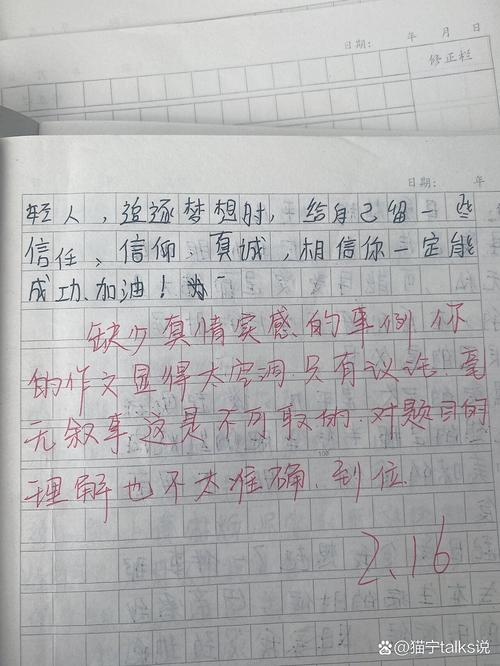 日期: 年 月 日
修正栏
日期: 年
轻人，追逐梦想时，给自己留一些
信任、信仰、真诚，相信你一定能
成功、加油！
缺少真情实感的事例 你
的作文显得太空洞 只有议论 毫
无叙事 这是不可取的. 对题目的
理解也不太准确、到位.
100
2.16
@猫宁talks说